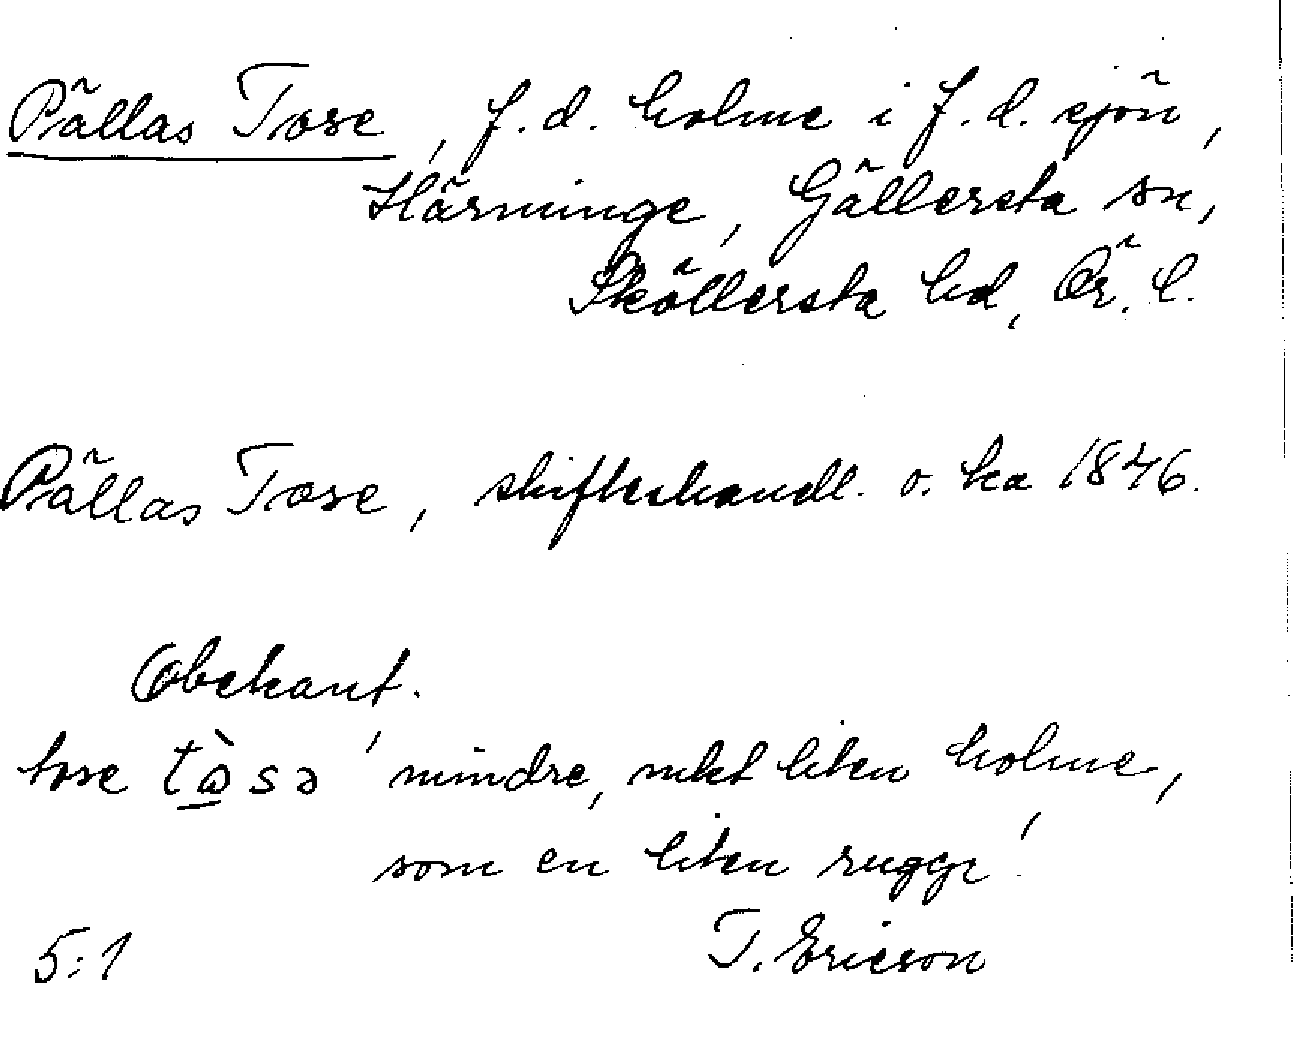 Pällas Tose, f.d. holme i f.d. sjön,
Härminge, Gällersta sn,
Sköllersta hd, Ör. l.
Pällas Tose, skifteshandl. o. ka 1846.
Obekant.
tose tò̲sə 'mindre, mkt liten holme,
som en liten rugge'.
T. Ericson
5:1